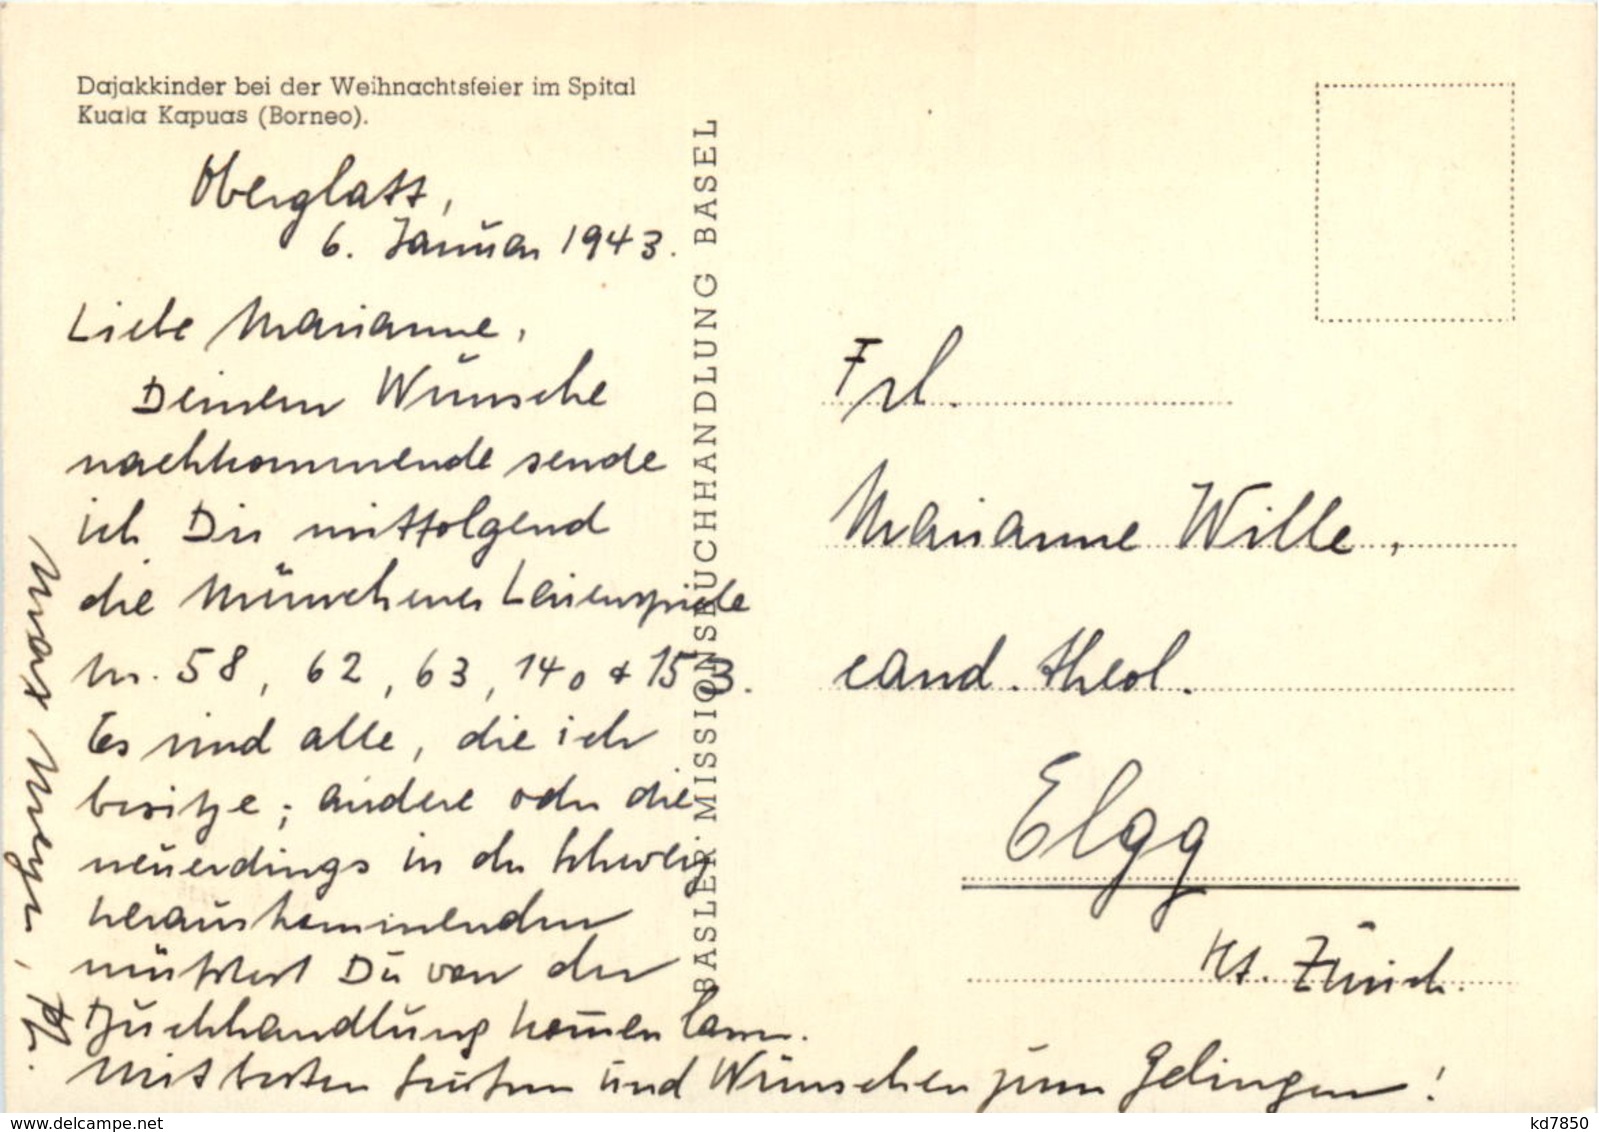 Dajakkinder bei der Weihnachtsfeier im Spital
Kuala Kapuas (Borneo).
Oberglatt,
6. Januar 1943.
Liebe Marianne,
Deinem Wunsche
nachkommend sende
ich Dir mitfolgend
die Münchener Laienspiele
Nr. 58, 62, 63, 140 & 153.
Es sind alle, die ich
besitze; andere oder die
neuerdings in der Schweiz
herauskommenden
müsstest Du von der
Buchhandlung kommen lassen.
Mit besten Grüssen und Wünschen zum Gelingen!
Max Meyer, Pfr.
BASLER MISSIONSBUCHHANDLUNG BASEL
Frl.
Marianne Wille,
cand. theol.
Elgg
Kt. Zürich.
www.delcampe.net
kd7850